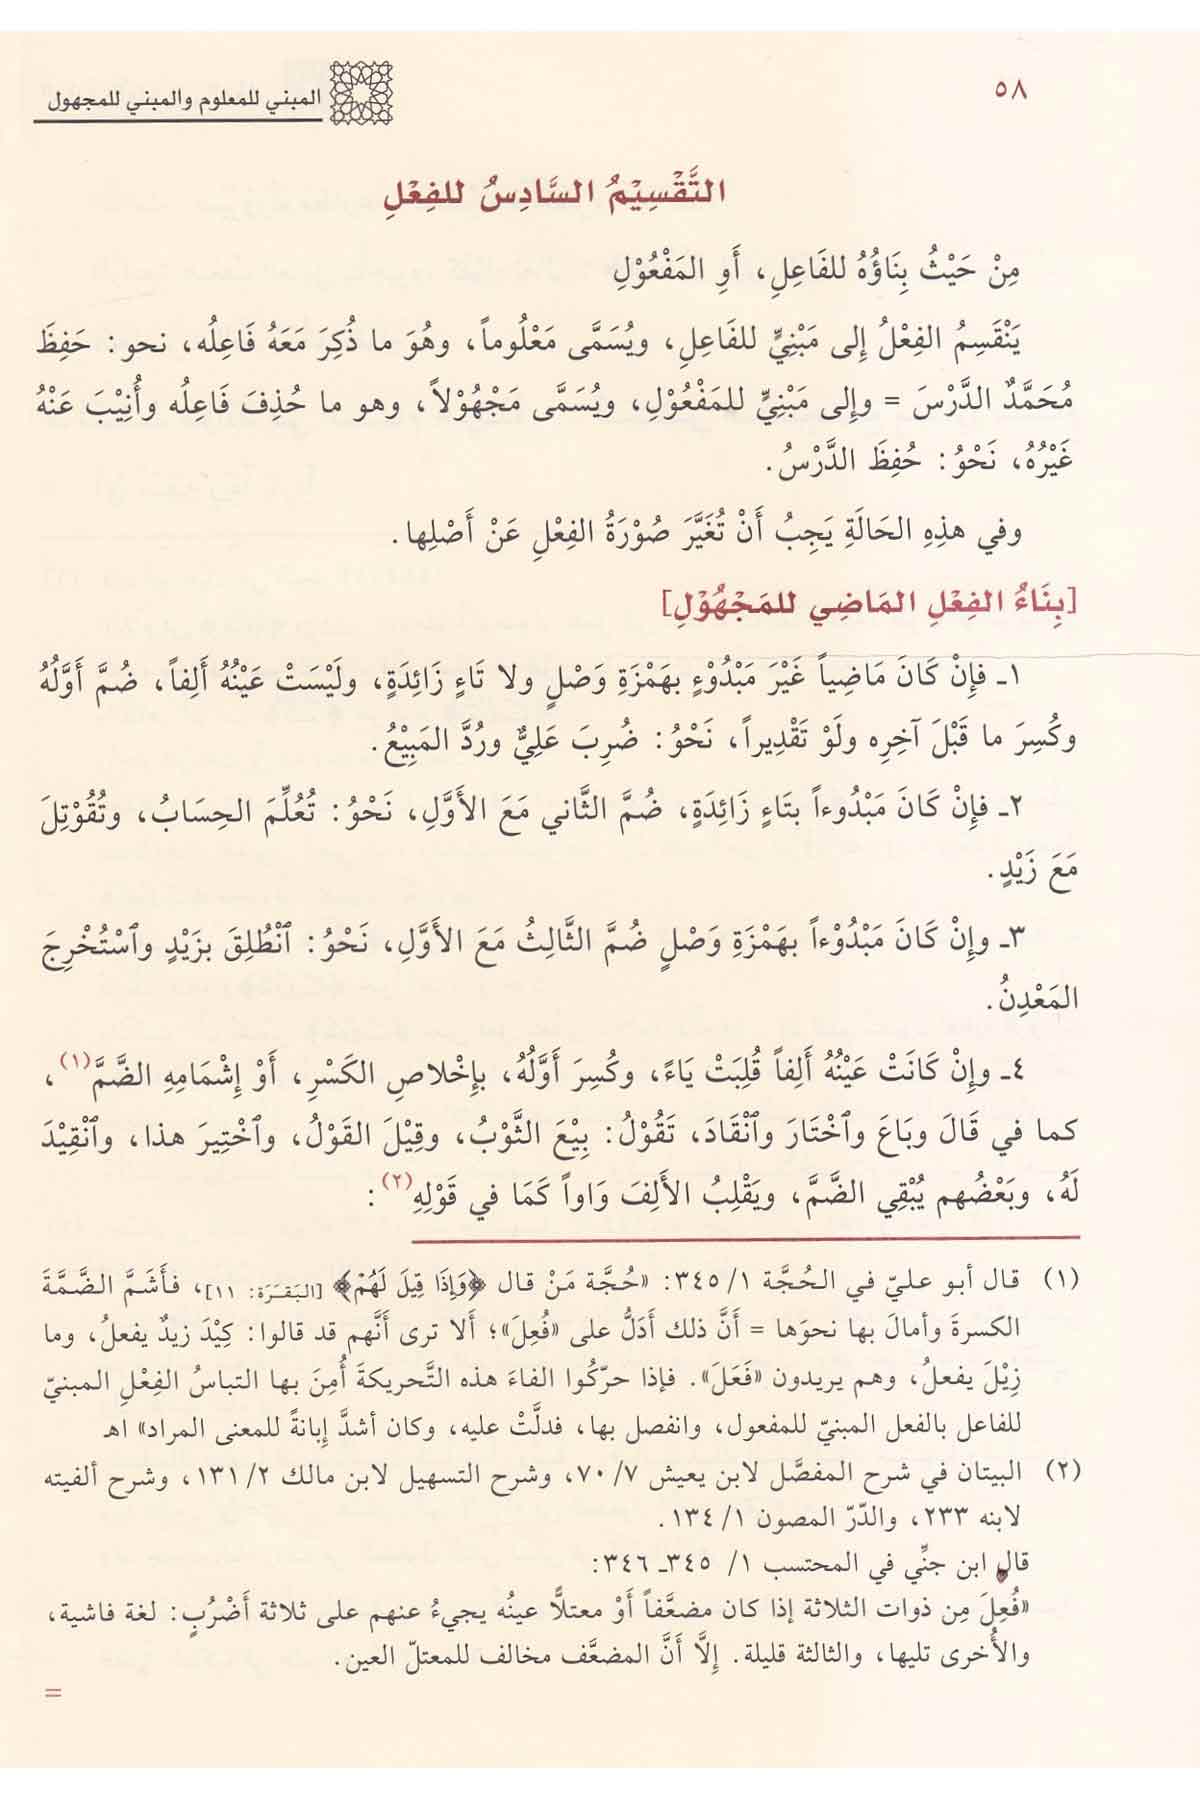 ٥٨
المبني للمعلوم والمبني للمجهول
التَّقْسِيْمُ السَّادِسُ للفِعْلِ
مِنْ حَيْثُ بِنَاؤُهُ للفَاعِلِ، أَوِ المَفْعُوْلِ
يَنْقَسِمُ الفِعْلُ إِلى مَبْنِيٍّ للفَاعِلِ، ويُسَمَّى مَعْلُوماً، وهُوَ ما ذُكِرَ مَعَهُ فَاعِلُه، نحو: حَفِظَ
مُحَمَّدٌ الدَّرْسَ = وإِلى مَبْنِيٍّ للمَفْعُوْلِ، ويُسَمَّى مَجْهُوْلاً، وهو ما حُذِفَ فَاعِلُه وأُنِيْبَ عَنْهُ
غَيْرُهُ، نَحْوُ: حُفِظَ الدَّرْسُ.
وفي هذِهِ الحَالَةِ يَجِبُ أَنْ تُغَيَّرَ صُوْرَةُ الفِعْلِ عَنْ أَصْلِها.
[بِنَاءُ الفِعْلِ المَاضِي للمَجْهُوْلِ]
١ـ فإِنْ كَانَ مَاضِياً غَيْرَ مَبْدُوْءٍ بهَمْزَةِ وَصْلٍ ولا تَاءٍ زَائِدَةٍ، ولَيْسَتْ عَيْنُهُ أَلِفاً، ضُمَّ أَوَّلُهُ
وكُسِرَ ما قَبْلَ آخِرِه ولَوْ تَقْدِيراً، نَحْوُ: ضُرِبَ عَلِيٌّ ورُدَّ المَبِيْعُ.
٢ـ فإِنْ كَانَ مَبْدُوءاً بتَاءٍ زَائِدَةٍ، ضُمَّ الثَّاني مَعَ الأَوَّلِ، نَحْوُ: تُعُلِّمَ الحِسَابُ، وتُقُوْتِلَ
مَعَ زَيْدٍ.
٣ـ وإِنْ كَانَ مَبْدُوْءاً بهَمْزَةِ وَصْلٍ ضُمَّ الثَّالِثُ مَعَ الأَوَّلِ، نَحْوُ: ٱنْطُلِقَ بزَيْدٍ وٱسْتُخْرِجَ
المَعْدِنُ.
٤ـ وإِنْ كَانَتْ عَيْنُهُ أَلِفاً قُلِبَتْ يَاءً، وكُسِرَ أَوَّلُهُ، بإِخْلاصِ الكَسْرِ، أَوْ إِشْمَامِهِ الضَّمَّ(١)،
كما في قَالَ وبَاعَ وٱخْتَارَ وٱنْقَادَ، تَقُوْلُ: بِيْعَ الثَّوْبُ، وقِيْلَ القَوْلُ، وٱخْتِيرَ هذا، وٱنْقِيْدَ
لَهُ، وبَعْضُهم يُبْقِي الضَّمَّ، ويَقْلِبُ الأَلِفَ وَاواً كَمَا في قَوْلِهِ(٢):
(١) قال أبو عليّ في الحُجَّة ١/ ٣٤٥: «حُجَّة مَنْ قال ﴿وَإِذَا قِيلَ لَهُمْ﴾ [البَقَرَة: ١١]، فأَشَمَّ الضَّمَّةَ
الكسرةَ وأمالَ بها نحوَها = أَنَّ ذلك أَدَلُّ على «فُعِلَ»؛ أَلا ترى أَنَّهم قد قالوا: كِيْدَ زيدٌ يفعلُ، وما
زِيْلَ يفعلُ، وهم يريدون «فَعَلَ». فإذا حرّكُوا الفاءَ هذه التَّحريكةَ أُمِنَ بها التباسُ الفِعْلِ المبنيّ
للفاعل بالفعل المبنيّ للمفعول، وانفصل بها، فدلَّتْ عليه، وكان أشدَّ إبانةً للمعنى المراد» اهـ
(٢) البيتان في شرح المفصَّل لابن يعيش ٧/ ٧٠، وشرح التسهيل لابن مالك ٢/ ١٣١، وشرح ألفيته
لابنه ٢٣٣، والدّرّ المصون ١/ ١٣٤.
قال ابن جنِّي في المحتسب ١/ ٣٤٥ـ ٣٤٦:
«فُعِلَ مِن ذوات الثلاثة إذا كان مضعَّفاً أَوْ معتلًّا عينُه يجيءُ عنهم على ثلاثة أَضْرُبٍ: لغة فاشية،
والأُخرى تليها، والثالثة قليلة. إلَّا أَنَّ المضعَّف مخالف للمعتلّ العين.
=